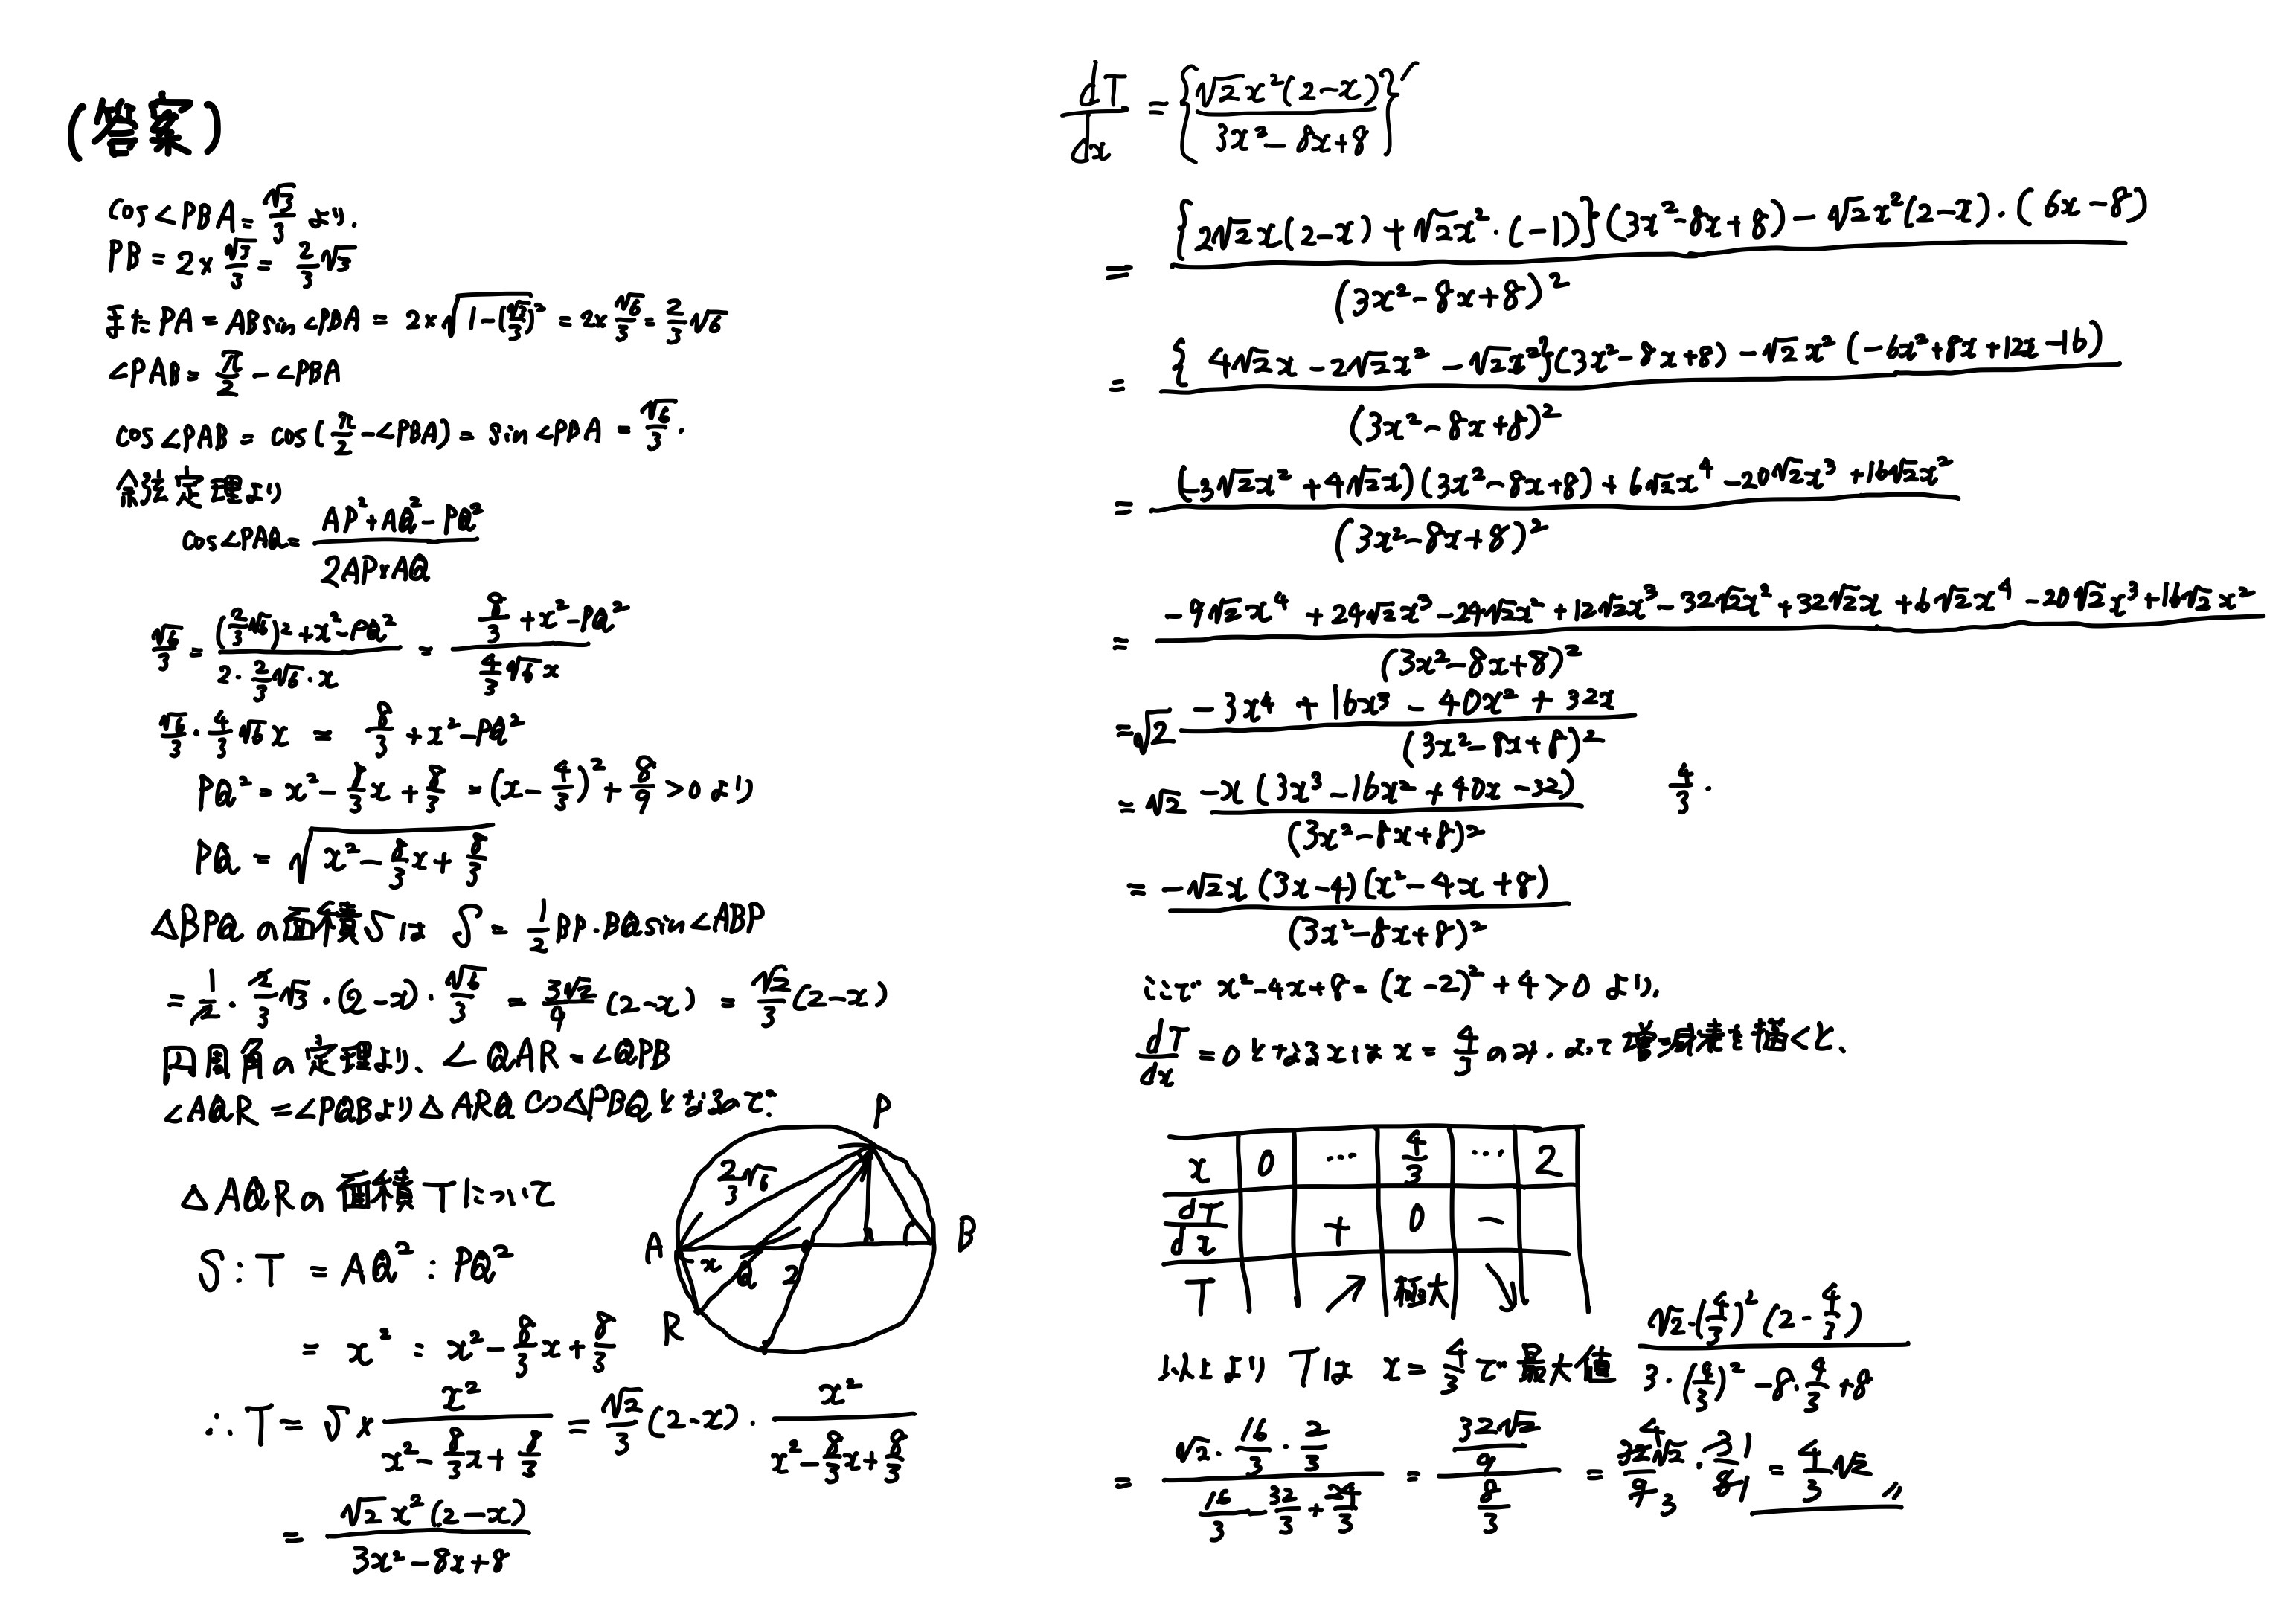 (答案)
cos∠PBA = √3/3 より.
PB = 2 × √3/3 = 2/3 √3
また PA = AB sin∠PBA = 2×√(1-(√3/3)²) = 2× √6/3 = 2/3 √6
∠PAB = π/2 - ∠PBA
cos∠PAB = cos(π/2 - ∠PBA) = sin∠PBA = √6/3.
余弦定理より
cos∠PAQ = (AP²+AQ²-PQ²)/(2AP×AQ)
√6/3 = ((2/3 √6)²+x²-PQ²)/(2・2/3 √6・x) = (8/3 + x² - PQ²)/(4/3 √6 x)
√6/3・4/3 √6 x = 8/3 + x² - PQ²
PQ² = x² - 8/3 x + 8/3 = (x - 4/3)² + 8/9 > 0 より
PQ = √(x² - 8/3 x + 8/3)
△BPQの面積Sは S = 1/2 BP・BQ sin∠ABP
= 1/2・2/3 √3・(2-x)・√6/3 = 3√2/9 (2-x) = √2/3 (2-x)
円周角の定理より、∠QAR = ∠QPB
∠AQR = ∠PQBより△ARQ∽△PBQとなるので.
△AQRの面積Tについて
S : T = AQ² : PQ²
= x² : x² - 8/3 x + 8/3
∴ T = S × x²/(x² - 8/3 x + 8/3) = √2/3 (2-x)・x²/(x² - 8/3 x + 8/3)
= √2 x²(2-x)/(3x²-8x+8)
2/3 √6
P
A
B
x
Q
2
R
dT/dx = {√2 x²(2-x)/(3x²-8x+8)}′
= ({2√2 x(2-x) + √2 x²・(-1)}(3x²-8x+8) - √2 x²(2-x)・(6x-8))/(3x²-8x+8)²
= ({4√2 x - 2√2 x² - √2 x²}(3x²-8x+8) - √2 x²(-6x²+8x+12x-16))/(3x²-8x+8)²
= ((-3√2 x² + 4√2 x)(3x²-8x+8) + 6√2 x⁴ - 20√2 x³ + 16√2 x²)/(3x²-8x+8)²
= (-9√2 x⁴ + 24√2 x³ - 24√2 x² + 12√2 x³ - 32√2 x² + 32√2 x + 6√2 x⁴ - 20√2 x³ + 16√2 x²)/(3x²-8x+8)²
= √2 (-3x⁴ + 16x³ - 40x² + 32x)/(3x²-8x+8)²
= √2 -x(3x³-16x²+40x-32)/(3x²-8x+8)² 4/3.
= -√2 x(3x-4)(x²-4x+8)/(3x²-8x+8)²
ここで x²-4x+8 = (x-2)²+4>0 より,
dT/dx = 0 となるxは x = 4/3 のみ. よって増減表を描くと、
x 0 … 4/3 … 2
dT/dx + 0 -
T ↗ 極大 ↘
以上より Tは x = 4/3 で最大値 √2・(4/3)²(2-4/3)/(3・(4/3)²-8・4/3+8)
= (√2・16/3・2/3)/(16/3 - 32/3 + 24/3) = (32√2/9)/(8/3) = 32√2/9・3/8 = 4/3 √2 〃